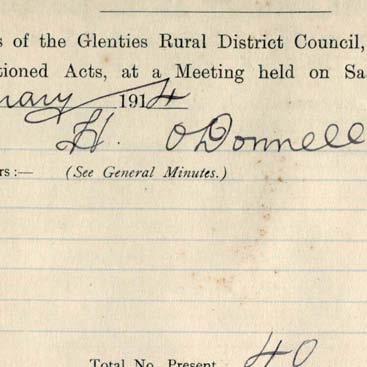 s of the Glenties Rural District Council,
tioned Acts, at a Meeting held on Sa
uary 1914
H. O'Donnell
rs :— (See General Minutes.)
Total No. Present 40